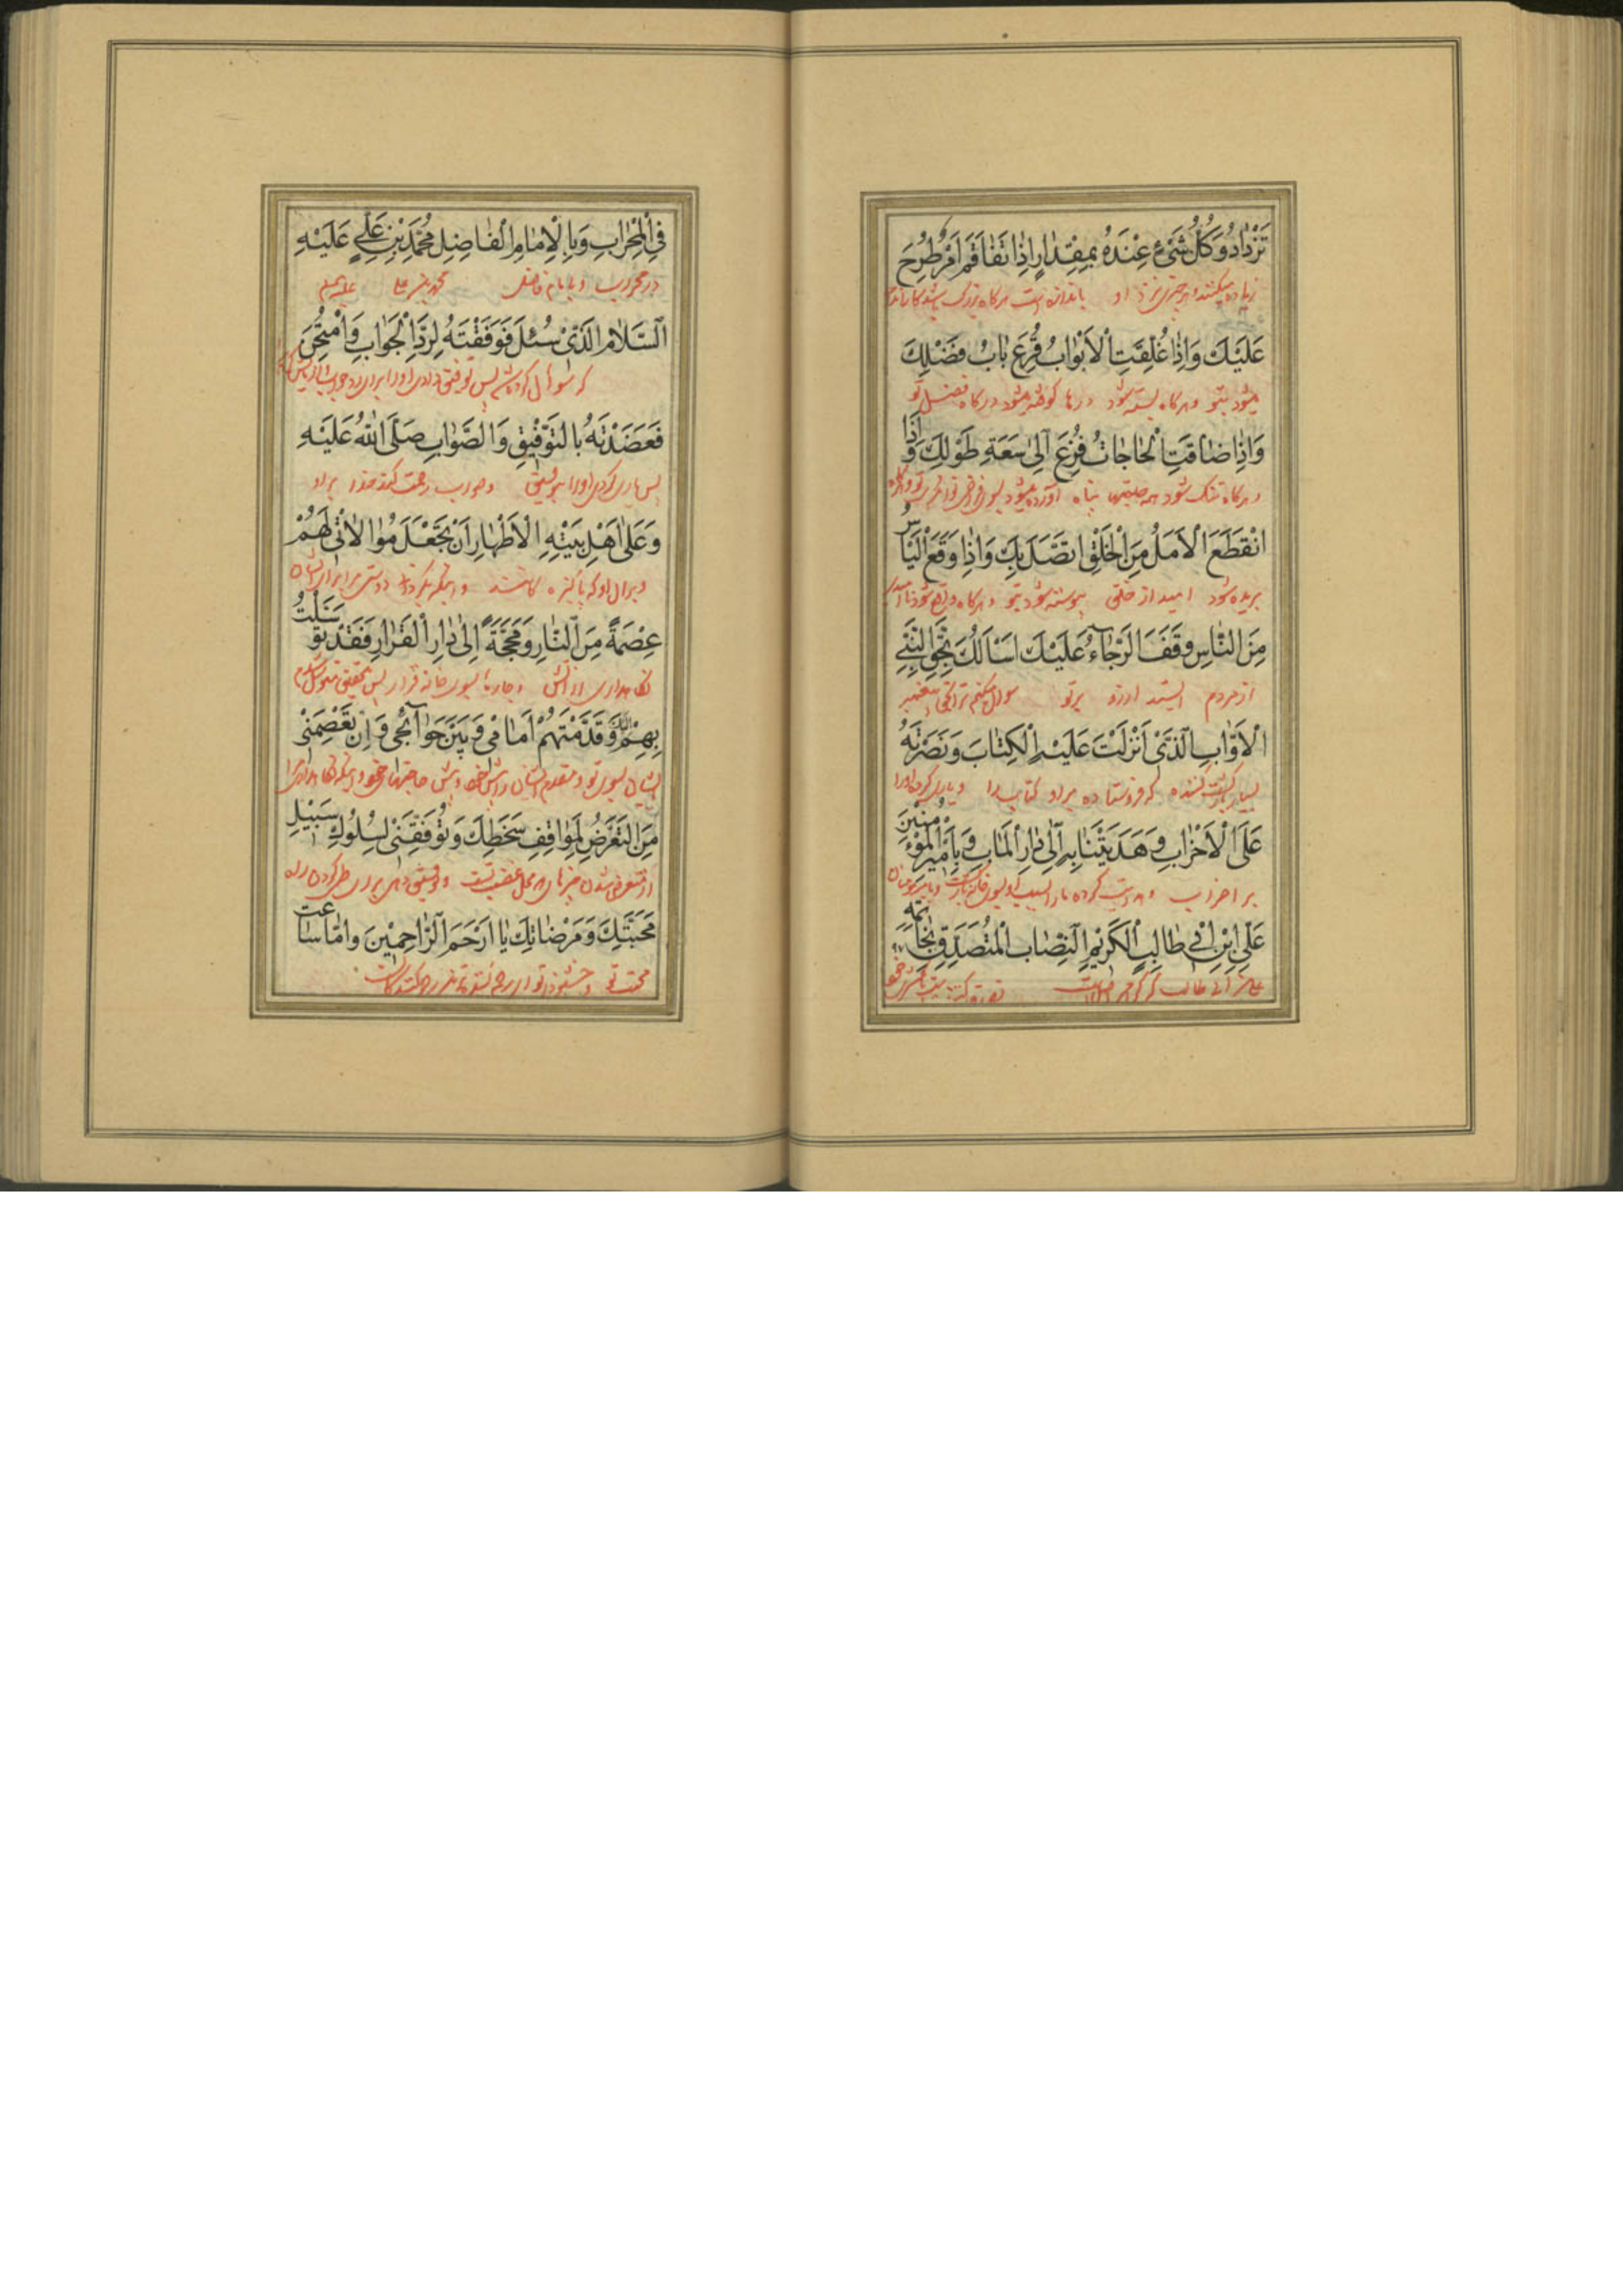 تَزْدَادُ وَكُلُّ شَیْءٍ عِنْدَهُ بِمِقْدَارٍ اِذَا تَفَاقَمَ اَمْرٌ طُرِحَ
زیاده میکنند و هر چیزی نزد او باندازه است هرگاه بزرگ باشد کار
عَلَیْكَ وَاِذَا غُلِقَتِ الْاَبْوَابُ قُرِعَ بَابُ فَضْلِكَ
میشود بتو و هرگاه بسته شود درها کوفته میشود درگاه فضل تو
وَاِذَا ضَاقَتِ الْحَاجَاتُ فُزِعَ اِلٰی سَعَةِ طَوْلِكَ وَاِذَا
و هرگاه تنگ شود همه حاجتها پناه آورده میشود بسوی
انْقَطَعَ الْاَمَلُ مِنَ الْخَلْقِ اتَّصَلَ بِكَ وَاِذَا وَقَعَ الْیَاْسُ
بریده شود امید از خلق پیوسته شود بتو و هرگاه واقع شود ناامیدی
مِنَ النَّاسِ وَقَفَ الرَّجَاءُ عَلَیْكَ اَسْاَلُكَ بِحَقِّ النَّبِیِّ
از مردم ایستد آرزو برتو سوال میکنم ترا بحق پیغمبر
الْاَوَّابِ الَّذِی اَنْزَلْتَ عَلَیْهِ الْكِتَابَ وَنَصَرْتَهُ
بسیار بازگشت کننده که فرستاده براو کتاب را و یاری کردی اورا
عَلَی الْاَحْزَابِ وَهَدَیْتَنَا بِهِ اِلٰی دَارِ الْمَاٰبِ وَبِاَمِیْرِ الْمُؤْمِنِینَ
بر احزاب و هدایت کرده مارا بسبب او بسوی
عَلِیِّ ابْنِ اَبِی طَالِبٍ الْكَرِیْمِ النِّصَابِ الْمُتَصَدِّقِ بِخَاتَمِهِ
علی بن ابی طالب که
فِی الْمِحْرَابِ وَبِالْاِمَامِ الْفَاضِلِ مُحَمَّدِ بْنِ عَلِیٍّ عَلَیْهِ
در محراب و بامام فاضل محمد بن علی علیهم
السَّلَامُ الَّذِی سُئِلَ فَوَفَّقْتَهُ لِرَدِّ الْجَوَابِ وَامْتُحِنَ
که سوال کرده شد پس توفیق دادی اورا برای رد جواب
فَعَضَدْتَهُ بِالتَّوْفِیْقِ وَالصَّوَابِ صَلَّی اللهُ عَلَیْهِ
پس یاری کردی اورا بتوفیق و صواب رحمت کند خدا براو
وَعَلٰی اَهْلِ بَیْتِهِ الْاَطْهَارِ اَنْ تَجْعَلَ مُوَالَاتِی لَهُمْ
و برآل او که پاکیزه کانند و اینکه بگردانی دوستی مرا برای ایشان
عِصْمَةً مِنَ النَّارِ وَمَحَجَّةً اِلٰی دَارِ الْقَرَارِ فَقَدْ تَوَسَّلْتُ
نگاهداری از آتش و جاده بسوی خانه قرار پس بتحقیق متوسل شدم
بِهِمْ اِلَیْكَ وَقَدَّمْتُهُمْ اَمَامِی وَبَیْنَ حَوَائِجِی وَاَنْ تَعْصِمَنِی
بایشان بسوی تو و مقدم داشتم ایشان را پیش خود و پیش حاجتهای خود و اینکه نگاهداری مرا
مِنَ التَّعَرُّضِ لِمَوَاقِفِ سَخَطِكَ وَتُوَفِّقَنِی لِسُلُوكِ سَبِیْلِ
از متعرض شدن محل غضب تست و توفیق دهی برای طی کردن راه
مَحَبَّتِكَ وَمَرْضَاتِكَ یَا اَرْحَمَ الرَّاحِمِیْنَ وَاَمَّا سَاعَتِ
محبت تو و خشنودی تو ای رحم کننده